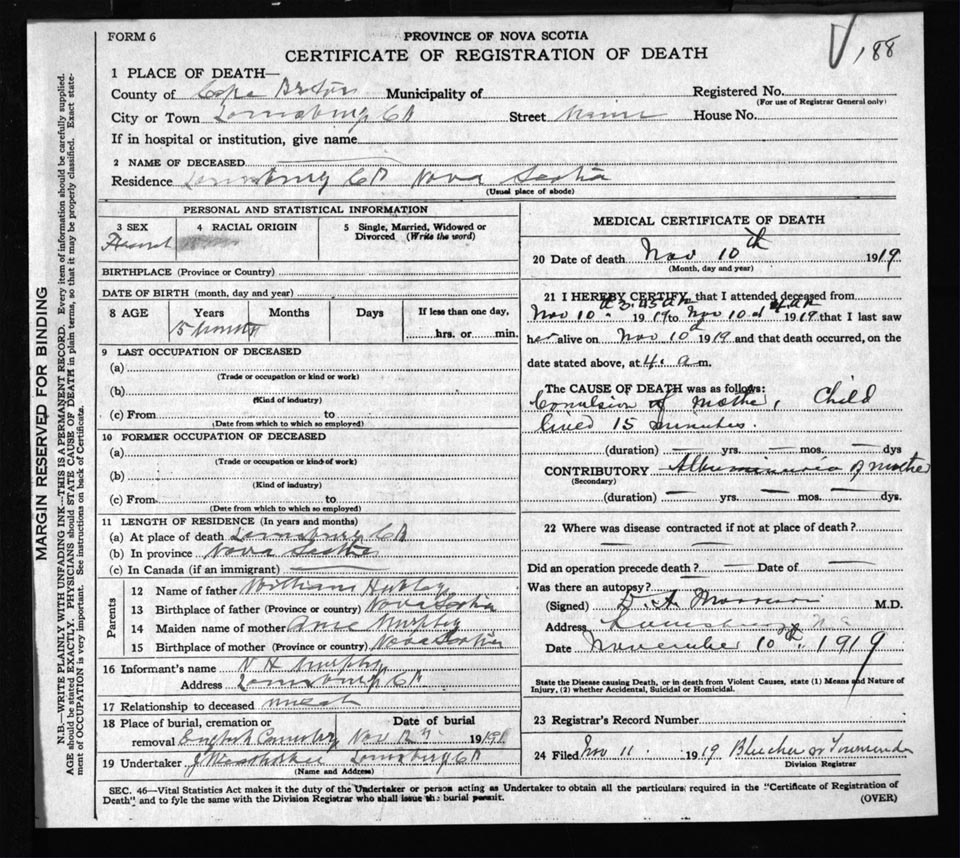 FORM 6
PROVINCE OF NOVA SCOTIA
CERTIFICATE OF REGISTRATION OF DEATH
188
1 PLACE OF DEATH—
County of Cape Breton Municipality of Registered No.
(For use of Registrar General only)
City or Town Louisburg CB Street Main House No.
If in hospital or institution, give name
2 NAME OF DECEASED
Residence Louisburg CB Nova Scotia
(Usual place of abode)
MARGIN RESERVED FOR BINDING
N.B.—WRITE PLAINLY WITH UNFADING INK—THIS IS A PERMANENT RECORD. Every item of information should be carefully supplied.
AGE should be stated EXACTLY. PHYSICIANS should STATE CAUSE OF DEATH in plain terms, so that it may be properly classified. Exact state-
ment of OCCUPATION is very important. See instructions on back of Certificate.
PERSONAL AND STATISTICAL INFORMATION
3 SEX
4 RACIAL ORIGIN
5 Single, Married, Widowed or
Divorced (Write the word)
BIRTHPLACE (Province or Country)
DATE OF BIRTH (month, day and year)
8 AGE Years Months Days If less than one day,
15 hrs. or min.
9 LAST OCCUPATION OF DECEASED
(a)
(Trade or occupation or kind or work)
(b)
(Kind of industry)
(c) From to
(Date from which to which so employed)
10 FORMER OCCUPATION OF DECEASED
(a)
(Trade or occupation or kind of work)
(b)
(Kind of industry)
(c) From to
(Date from which to which so employed)
11 LENGTH OF RESIDENCE (In years and months)
(a) At place of death Louisburg CB
(b) In province Nova Scotia
(c) In Canada (if an immigrant)
Parents
12 Name of father William
13 Birthplace of father (Province or country) Nova Scotia
14 Maiden name of mother Murphy
15 Birthplace of mother (Province or country) Nova Scotia
16 Informant's name Murphy
Address Louisburg CB
17 Relationship to deceased
18 Place of burial, cremation or Date of burial
removal English Nov 12 1919
19 Undertaker Louisburg CB
(Name and Address)
MEDICAL CERTIFICATE OF DEATH
20 Date of death Nov 10th 1919
(Month, day and year)
21 I HEREBY CERTIFY that I attended deceased from
Nov 10th 3.45 AM 1919 to Nov 10 4 AM 1919 that I last saw
her alive on Nov 10 1919 and that death occurred, on the
date stated above, at 4. a m.
The CAUSE OF DEATH was as follows:
Convulsion of Mother, Child
lived 15 minutes.
(duration) yrs. mos. dys.
CONTRIBUTORY Albuminuria of mother
(Secondary)
(duration) yrs. mos. dys.
22 Where was disease contracted if not at place of death?
Did an operation precede death? Date of
Was there an autopsy?
(Signed) M.D.
Address Louisburg N.S.
Date November 10th, 1919
State the Disease causing Death, or in death from Violent Causes, state (1) Means and Nature of
Injury, (2) whether Accidental, Suicidal or Homicidal.
23 Registrar's Record Number
24 Filed Nov 11 1919 Townsend
Division Registrar
SEC. 46—Vital Statistics Act makes it the duty of the Undertaker or person acting as Undertaker to obtain all the particulars required in the "Certificate of Registration of
Death" and to fyle the same with the Division Registrar who shall issue the burial permit.
(OVER)